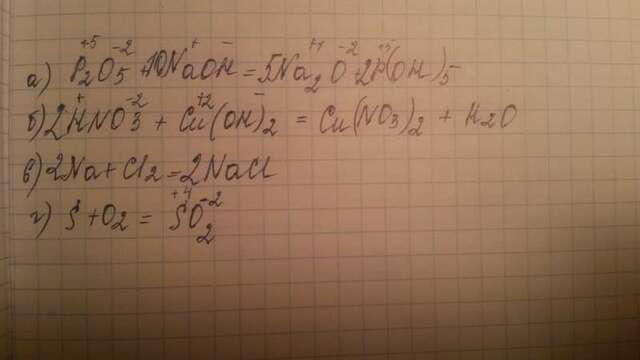 а) P₂⁺⁵O₅⁻² + 10Na⁺OH⁻ = 5Na₂⁺¹O⁻² 2P⁺⁵(OH)₅⁻
б) 2H⁺NO₃⁻² + Cu⁺²(OH)₂⁻ = Cu(NO₃)₂ + H₂O
в) 2Na + Cl₂ = 2NaCl
г) S + O₂ = S⁺⁴O₂⁻²